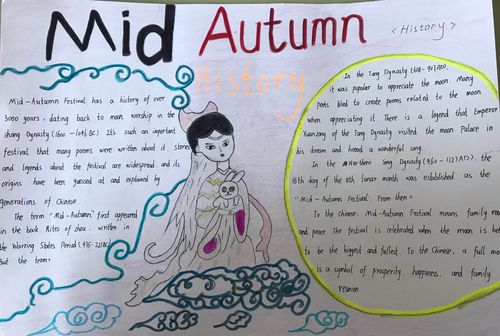 Mid Autumn
< History >
History
Mid-Autumn Festival has a history of over
3000 years, dating back to moon worship in the
shang Dynasty (1600-1046 BC). It's such an important
festival that many poems were written about it. stories
and legends about the festival are widespread, and its
origins have been guessed at and explained by
generations of Chinese
The term "Mid-Autumn" first appeared
in the book Rites of zhou, written in
the Warring States Period (475-221BC).
But the term
In the Tang Dynasty (618-907AD),
it was popular to appreciate the moon. Many
poets liked to create poems related to the moon
when appreciating it. There is a legend that Emperor
Xuanzong of the Tang Dynasty visited the moon Palace in
his dream and heard a wonderful song.
In the Northern Song Dynasty (960-1127AD), the
15th day of the 8th lunar month was established as the
"Mid-Autumn Festival". From then
To the Chinese, Mid-Autumn Festival means family
and peace. The festival is celebrated when the moon is
to be the biggest and fullest. To the Chinese, a full
is a symbol of prosperity, happiness, and family
reunion